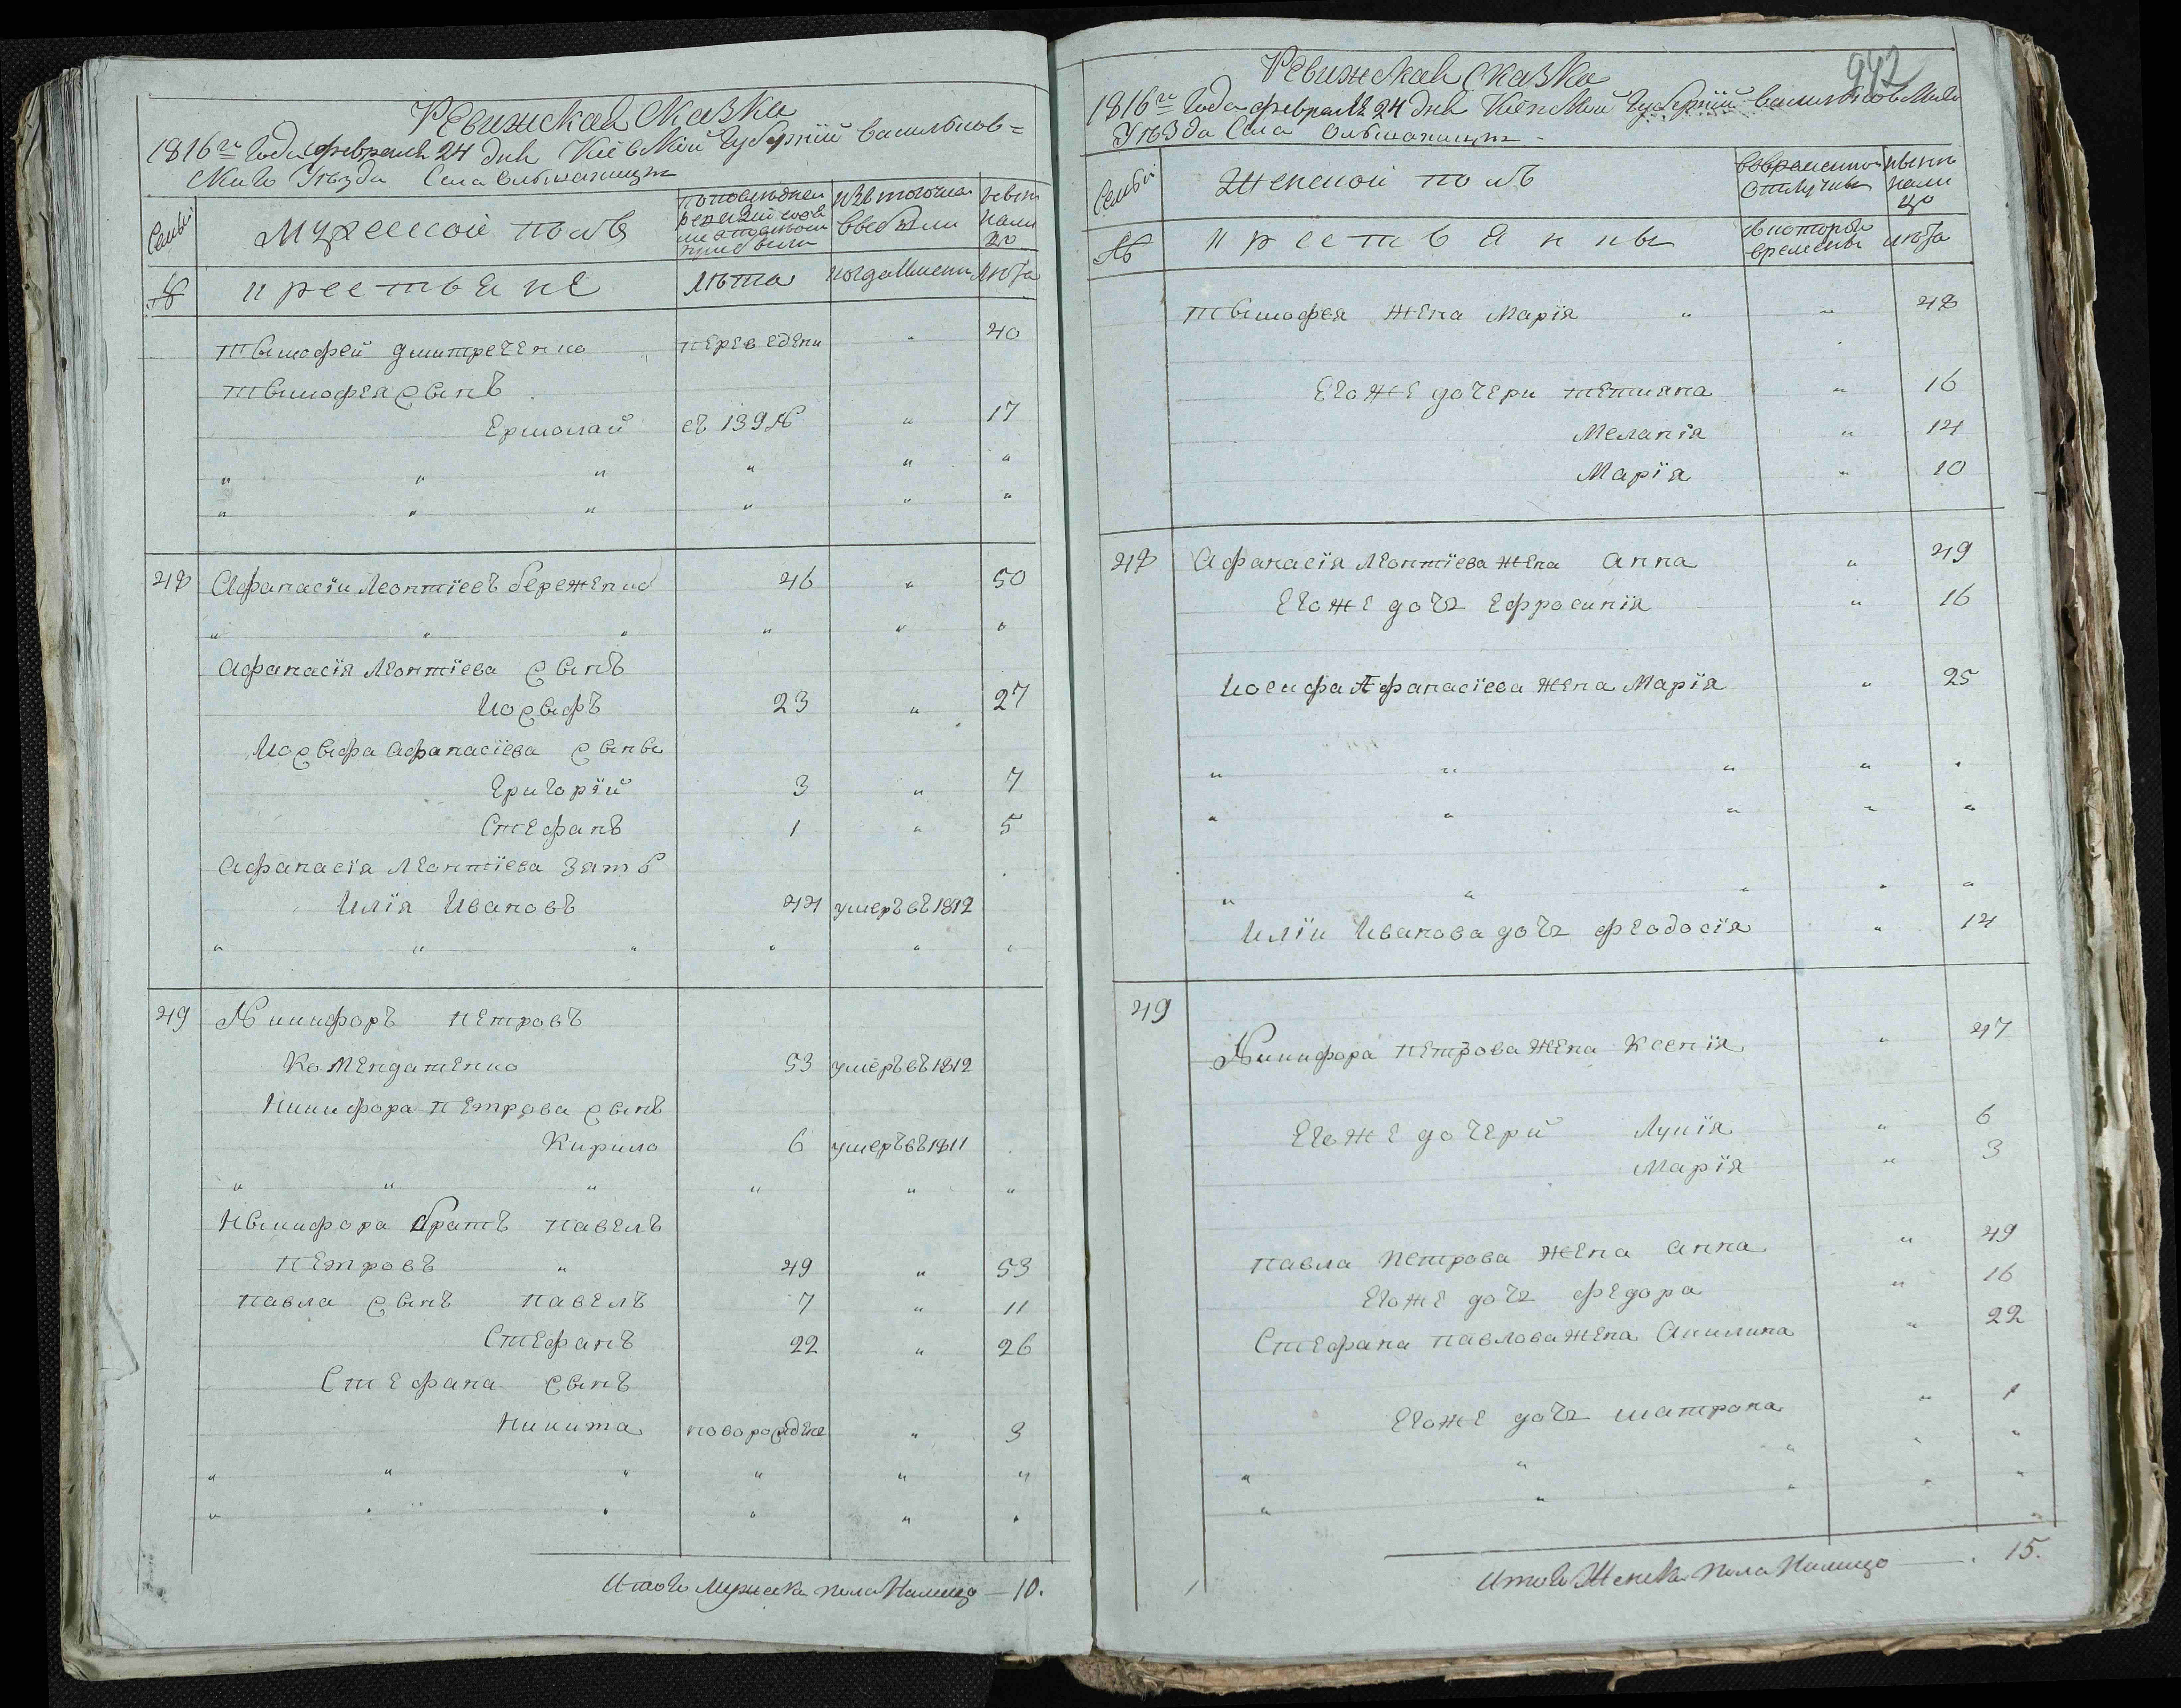 Ревижская Сказка
1816го Года февраля 24 дня Кіевской Губерніи Васильков=
скаго Уезда Села Ольшаницы
Семьи
мужескои полъ
по последней ревизіи состояло и после того прибыли
Изъ того числа выбыли
Ныне налицо
№
крестьяне
Лѣта
когда имени
Лѣта
Тымофей Дмитреченко переведени " 40
Тымофея сынъ
Ермолай съ 139 № " 17
" " " " " "
" " " " " "
48 Афанасіи Леонтіевъ береженко 46 " 50
" " " " " "
Афанасія Леонтіева сынъ
Иосыфъ 23 " 27
Иосыфа Афанасіева сыны
Григорій 3 " 7
Стефанъ 1 " 5
Афанасія Леонтіева зять
Илія Ивановъ 44 умеръ въ 1812
" " " " " "
49 Никифоръ Петровъ
Комендатенко 53 умеръ въ 1812
Никифора Петрова сынъ
Кирило 6 умеръ въ 1811
" " " " " "
Ныкифора братъ Павелъ
Петровъ " 49 " 53
Павла сынъ Павелъ 7 " 11
Стефанъ 22 " 26
Стефана сынъ
Никита новорожденъ " 3
" " " " " "
" " " " " "
Итого Мужеска пола Налицо — 10.
942
Ревижская Сказка
1816го Года февраля 24 дня Кіевской Губерніи Васильковскаго
Уѣзда Села Ольшаницы
Семьи
Женской полъ
Во временной отлучки
Ныне налицо
№
крестьянки
съ которого времены
лѣта
Тымофея жена Марія " " 48
Его же дочери Тетияна " 16
Меланія " 14
Марія " 10
48 Афанасія Леонтіева жена Анна " 49
Его же дочь Ефросинія " 16
Иосифа Афанасіева жена Марія " 25
" " " " "
" " " " "
" " " " "
Иліи Иванова дочь Феодосія " 14
49
Никифора Петрова жена Ксенія " 47
Его же дочери Лукія " 6
Марія " 3
Павла Петрова жена Анна " 49
Его же дочь Федора " 16
Стефана Павлова жена Акилина " 22
Его же дочь Матрона " 1
" " " " "
" " " " "
Итого Женска пола Налицо — 15.